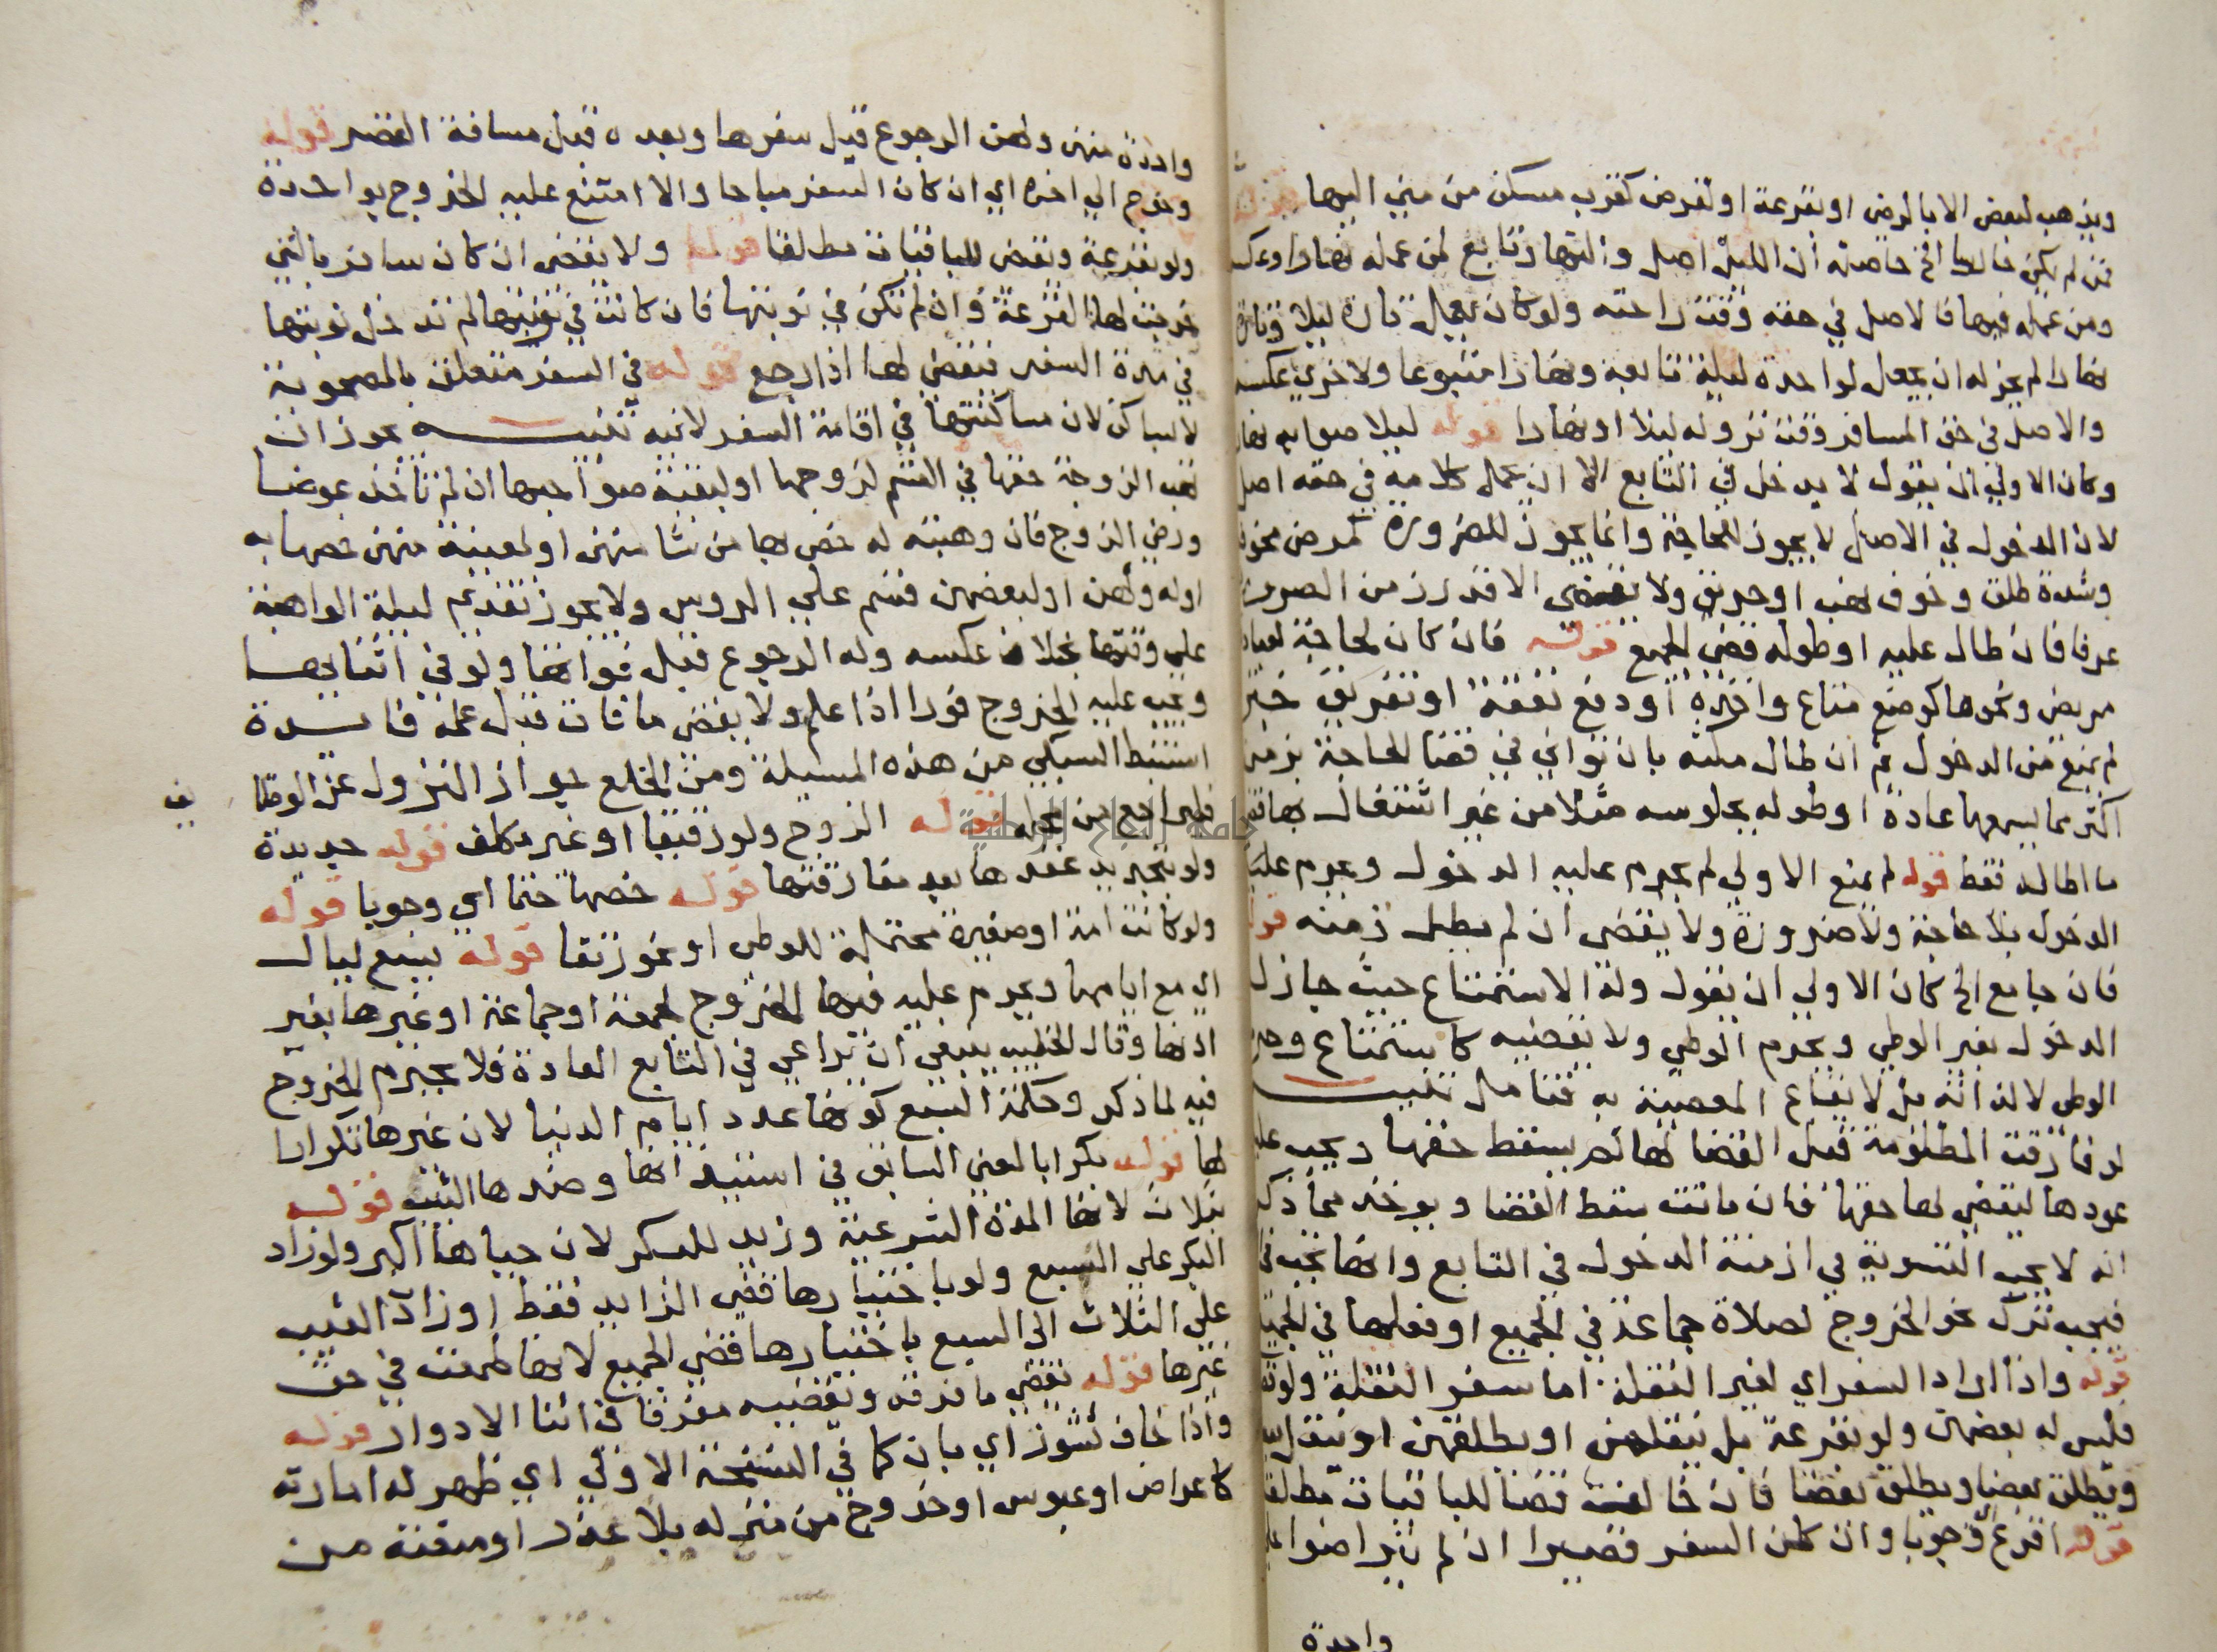 ويذهب لبعض الا بالرضى او بقرعة او لغرض كقرب مسكن من مضي اليها قوله
فمن لم يكن حارسا الخ حاصله ان الليل اصل والنهار تابع لمن عمله نهارا وعكسه
ومن عمله فيهما فالاصل في حقه وقت راحته ولو كان يعمل تارة ليلا وتارة
نهارا لم يجز له ان يجعل لواحدة ليلة تابعة ونهارا متبوعا ولاخرى عكسه
والاصل في حق المسافر وقت نزوله ليلا او نهارا قوله ليلا صوابه نهارا
وكان الاولى ان يقول لا يدخل في التابع الا ان يحمل كلامه في حقه اصل
لان الدخول في الاصل لا يجوز للحاجة وانما يجوز للضرورة كمرض مخوف
وشدة طلق وخوف نهب او حريق ولا يقضي الا قدر زمن الضرورة
عرفا فان طال عليه او طوله قضى الجميع قوله فان كان لحاجة لعيادة
مريض ونحوها كوضع متاع واخذه او دفع نفقة او تفريق خبز
لم يمنع من الدخول ثم ان طال مكثه بان توانى في قضا الحاجة بزمن
اكثر مما يسعها عادة او طوله بجلوسه مثلا من غير اشتغال بها قضى
ما اطاله فقط قوله لم يمنع الاولى لم يحرم عليه الدخول ويحرم عليه
الدخول بلا حاجة ولا ضرورة ولا يقضي ان لم يطل زمنه قوله
فان جامع الخ كان الاولى ان يقول وله الاستمتاع حيث جاز له
الدخول بغير الوطي ويحرم الوطي ولا يقضيه كالاستمتاع وحرمة
الوطي لا لذاته بل لايقاع المعصية به فتامل تنبيه
لو فارقت المظلومة قبل القضا لها لم يسقط حقها ويجب عليه
عودها ليقضي لها حقها فان ماتت سقط القضا ويوخذ مما ذكر
انه لا يجب التسوية في ازمنة الدخول في التابع وانها تجب في
فيجب ترك نحو الخروج لصلاة جماعة في الجميع او فعلها في الجميع
قوله واذا اراد السفر اي لغير النقلة اما سفر النقلة ولو
فليس له بعضهن ولو بقرعة بل ينقلهن او يطلقهن او ينقل
ويطلق بعضا ويطلق بعضا فان خالف قضا للباقيات مطلقا
قوله اقرع وجوبا وان كان السفر قصيرا ان لم يتراضوا على
واحدة
واحدة منهن ولهن الرجوع قبل سفرها وبعده قبل مسافة القصر قوله
وخرج الى اخره اي ان كان السفر مباحا والا امتنع عليه الخروج بواحدة
ولو بقرعة ويقضي للباقيات مطلقا قوله ولا يقضي ان كان سافر بالتي
خرجت لها القرعة وان لم تكن في نوبتها فان كانت في نوبتها لم تدخل نوبتها
في مدة السفر فيقضي لها اذا رجع قوله في السفر متعلق بالمصحوبة
لا لساكن لان مساكنتها في اقامة السفر لا تنبيه تنبيه يجوز ان
تهب الزوجة حقها في القسم لزوجها او لبقية صواحبها ان لم تاخذ عوضا
ورضي الزوج فان وهبته له خص بها من شا منهن او لمعينة منهن خصها به
او له ولهن او لبعضهن قسم على الروس ولا يجوز تقديم ليلة الواهبة
على وقتها بخلاف عكسه وله الرجوع قبل فواتها ولو في اثنائها
ويجب عليه الخروج فورا اذا علم ولا يقضي ما فات قبل علمه فايدة
استنبط السبكي من هذه المسيلة ومن الخلع جواز النزول عن الوظا يف
فليراجع من محله قوله الزوج ولو رقيقا او غير مكلف قوله جديدة
ولو بتجديد عقدها بعد مفارقتها قوله خصها حتما اي وجوبا قوله
ولو كانت امة او صغيرة محتملة للوطي او نحو رتقا قوله بسبع ليال
اي مع ايامها ويحرم عليه فيها الخروج لجمعة او جماعة او غيرها بغير
اذنها وقال الخطيب ينبغي ان يراعى في التابع العادة فلا يحرم الخروج
فيه لما ذكر وحكمة السبع كونها عدد ايام الدنيا لان غيرها تكرار
لها قوله بكرا بالمعنى السابق في استيذانها وضدها الثيب قوله
بثلاث لانها المدة الشرعية وزيد للبكر لان حياها اكبر ولو زاد
البكر على السبع ولو باختيارها قضى الزايد فقط او زاد الثيب
على الثلاث الى السبع باختيارها قضى الجميع لانها طمعت في حق
غيرها قوله يقضي ما فرقه ويقضيه مفرقا في اثنا الادوار قوله
واذا خاف نشوز اي بان كما في النسخة الاولى اي ظهر له امارته
كاعراض او عبوس او خروج من منزله بلا عذر او منعته من
جامعة النجاح الوطنية